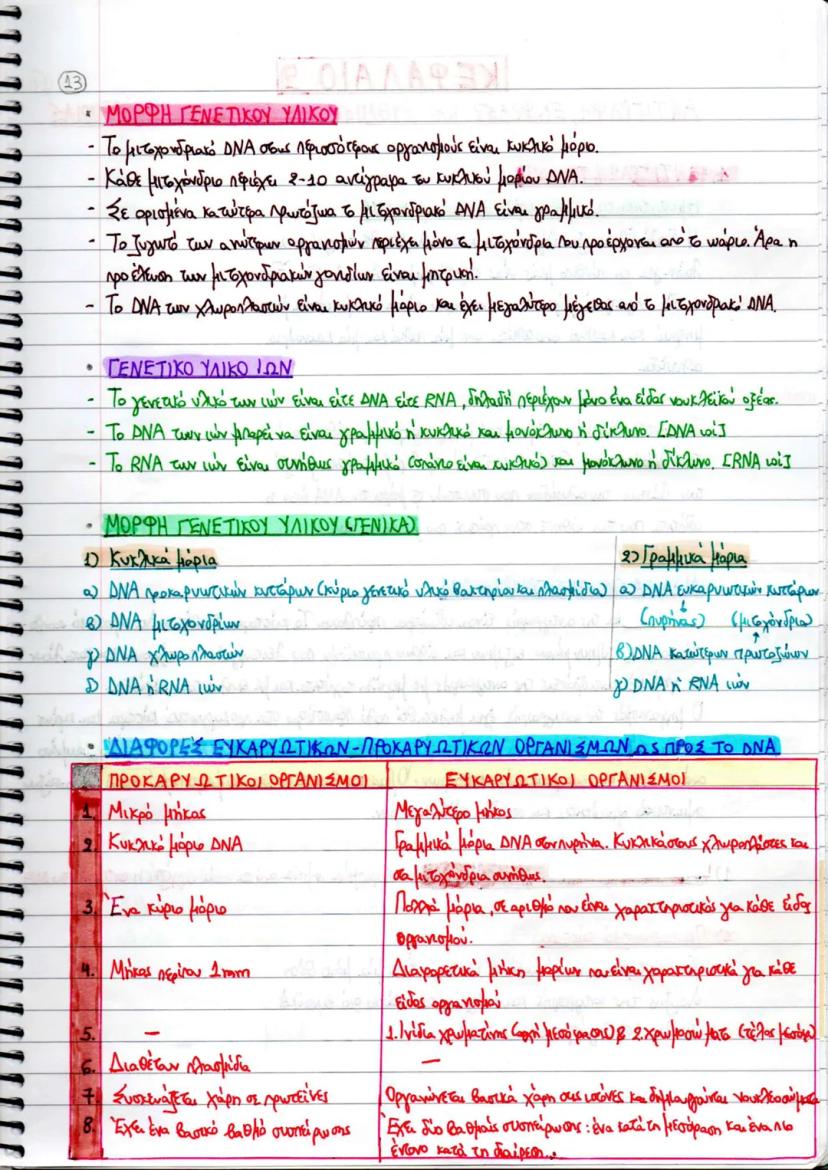 13
• ΜΟΡΦΗ ΓΕΝΕΤΙΚΟΥ ΥΛΙΚΟΥ
- Το μιτοχονδριακό DNA στους περισσότερους οργανισμούς είναι κυκλικό μόριο.
- Κάθε μιτοχόνδριο περιέχει 2-10 αντίγραφα του κυκλικού μορίου DNA.
- Σε ορισμένα κατώτερα πρωτόζωα το μιτοχονδριακό DNA είναι γραμμικό.
- Το ζυγωτό των ανώτερων οργανισμών περιέχει μόνο τα μιτοχόνδρια που προέρχονται από το ωάριο. Άρα η
προέλευση των μιτοχονδριακών γονιδίων είναι μητρική.
- Το DNA των χλωροπλαστών είναι κυκλικό μόριο και έχει μεγαλύτερο μέγεθος από το μιτοχονδριακό DNA.
• ΓΕΝΕΤΙΚΟ ΥΛΙΚΟ ΙΩΝ
- Το γενετικό υλικό των ιών είναι είτε DNA είτε RNA, δηλαδή περιέχουν μόνο ένα είδος νουκλεϊκού οξέος.
- Το DNA των ιών μπορεί να είναι γραμμικό ή κυκλικό και μονόκλωνο ή δίκλωνο. [DNA ιοί]
- Το RNA των ιών είναι συνήθως γραμμικό (σπάνιο είναι κυκλικό) και μονόκλωνο ή δίκλωνο. [RNA ιοί]
• ΜΟΡΦΗ ΓΕΝΕΤΙΚΟΥ ΥΛΙΚΟΥ (ΓΕΝΙΚΑ)
1) Κυκλικά μόρια
α) DNA προκαρυωτικών κυττάρων (κύριο γενετικό υλικό βακτηρίου και πλασμίδια)
β) DNA μιτοχονδρίων
γ) DNA χλωροπλαστών
δ) DNA ή RNA ιών
2) Γραμμικά μόρια
α) DNA ευκαρυωτικών κυττάρων
(πυρήνας) (μιτοχόνδρια)
β) DNA κατώτερων πρωτοζώων
γ) DNA ή RNA ιών
• ΔΙΑΦΟΡΕΣ ΕΥΚΑΡΥΩΤΙΚΩΝ-ΠΡΟΚΑΡΥΩΤΙΚΩΝ ΟΡΓΑΝΙΣΜΩΝ ΩΣ ΠΡΟΣ ΤΟ DNA
ΠΡΟΚΑΡΥΩΤΙΚΟΙ ΟΡΓΑΝΙΣΜΟΙ ΕΥΚΑΡΥΩΤΙΚΟΙ ΟΡΓΑΝΙΣΜΟΙ
1. Μικρό μήκος Μεγαλύτερο μήκος
2. Κυκλικό μόριο DNA Γραμμικά μόρια DNA στον πυρήνα. Κυκλικά στους χλωροπλάστες και
στα μιτοχόνδρια συνήθως.
3. Ένα κύριο μόριο Πολλά μόρια, σε αριθμό που είναι χαρακτηριστικός για κάθε είδος
οργανισμού.
4. Μήκος περίπου 1mm Διαφορετικά μήκη μορίων που είναι χαρακτηριστικά για κάθε
είδος οργανισμού
5. — 1. Ινίδια χρωματίνης (αρχή μεσόφασης) & 2. Χρωμοσώματα (τέλος μεσόφ)
6. Διαθέτουν πλασμίδια —
7. Συσκευάζεται χάρη σε πρωτεΐνες Οργανώνεται βασικά χάρη στις ιστόνες και δημιουργούνται νουκλεοσώματα
8. Έχει ένα βασικό βαθμό συσπείρωσης Έχει δύο βαθμούς συσπείρωσης: ένα κατά τη μεσόφαση και ένα πιο
έντονο κατά τη διαίρεση...